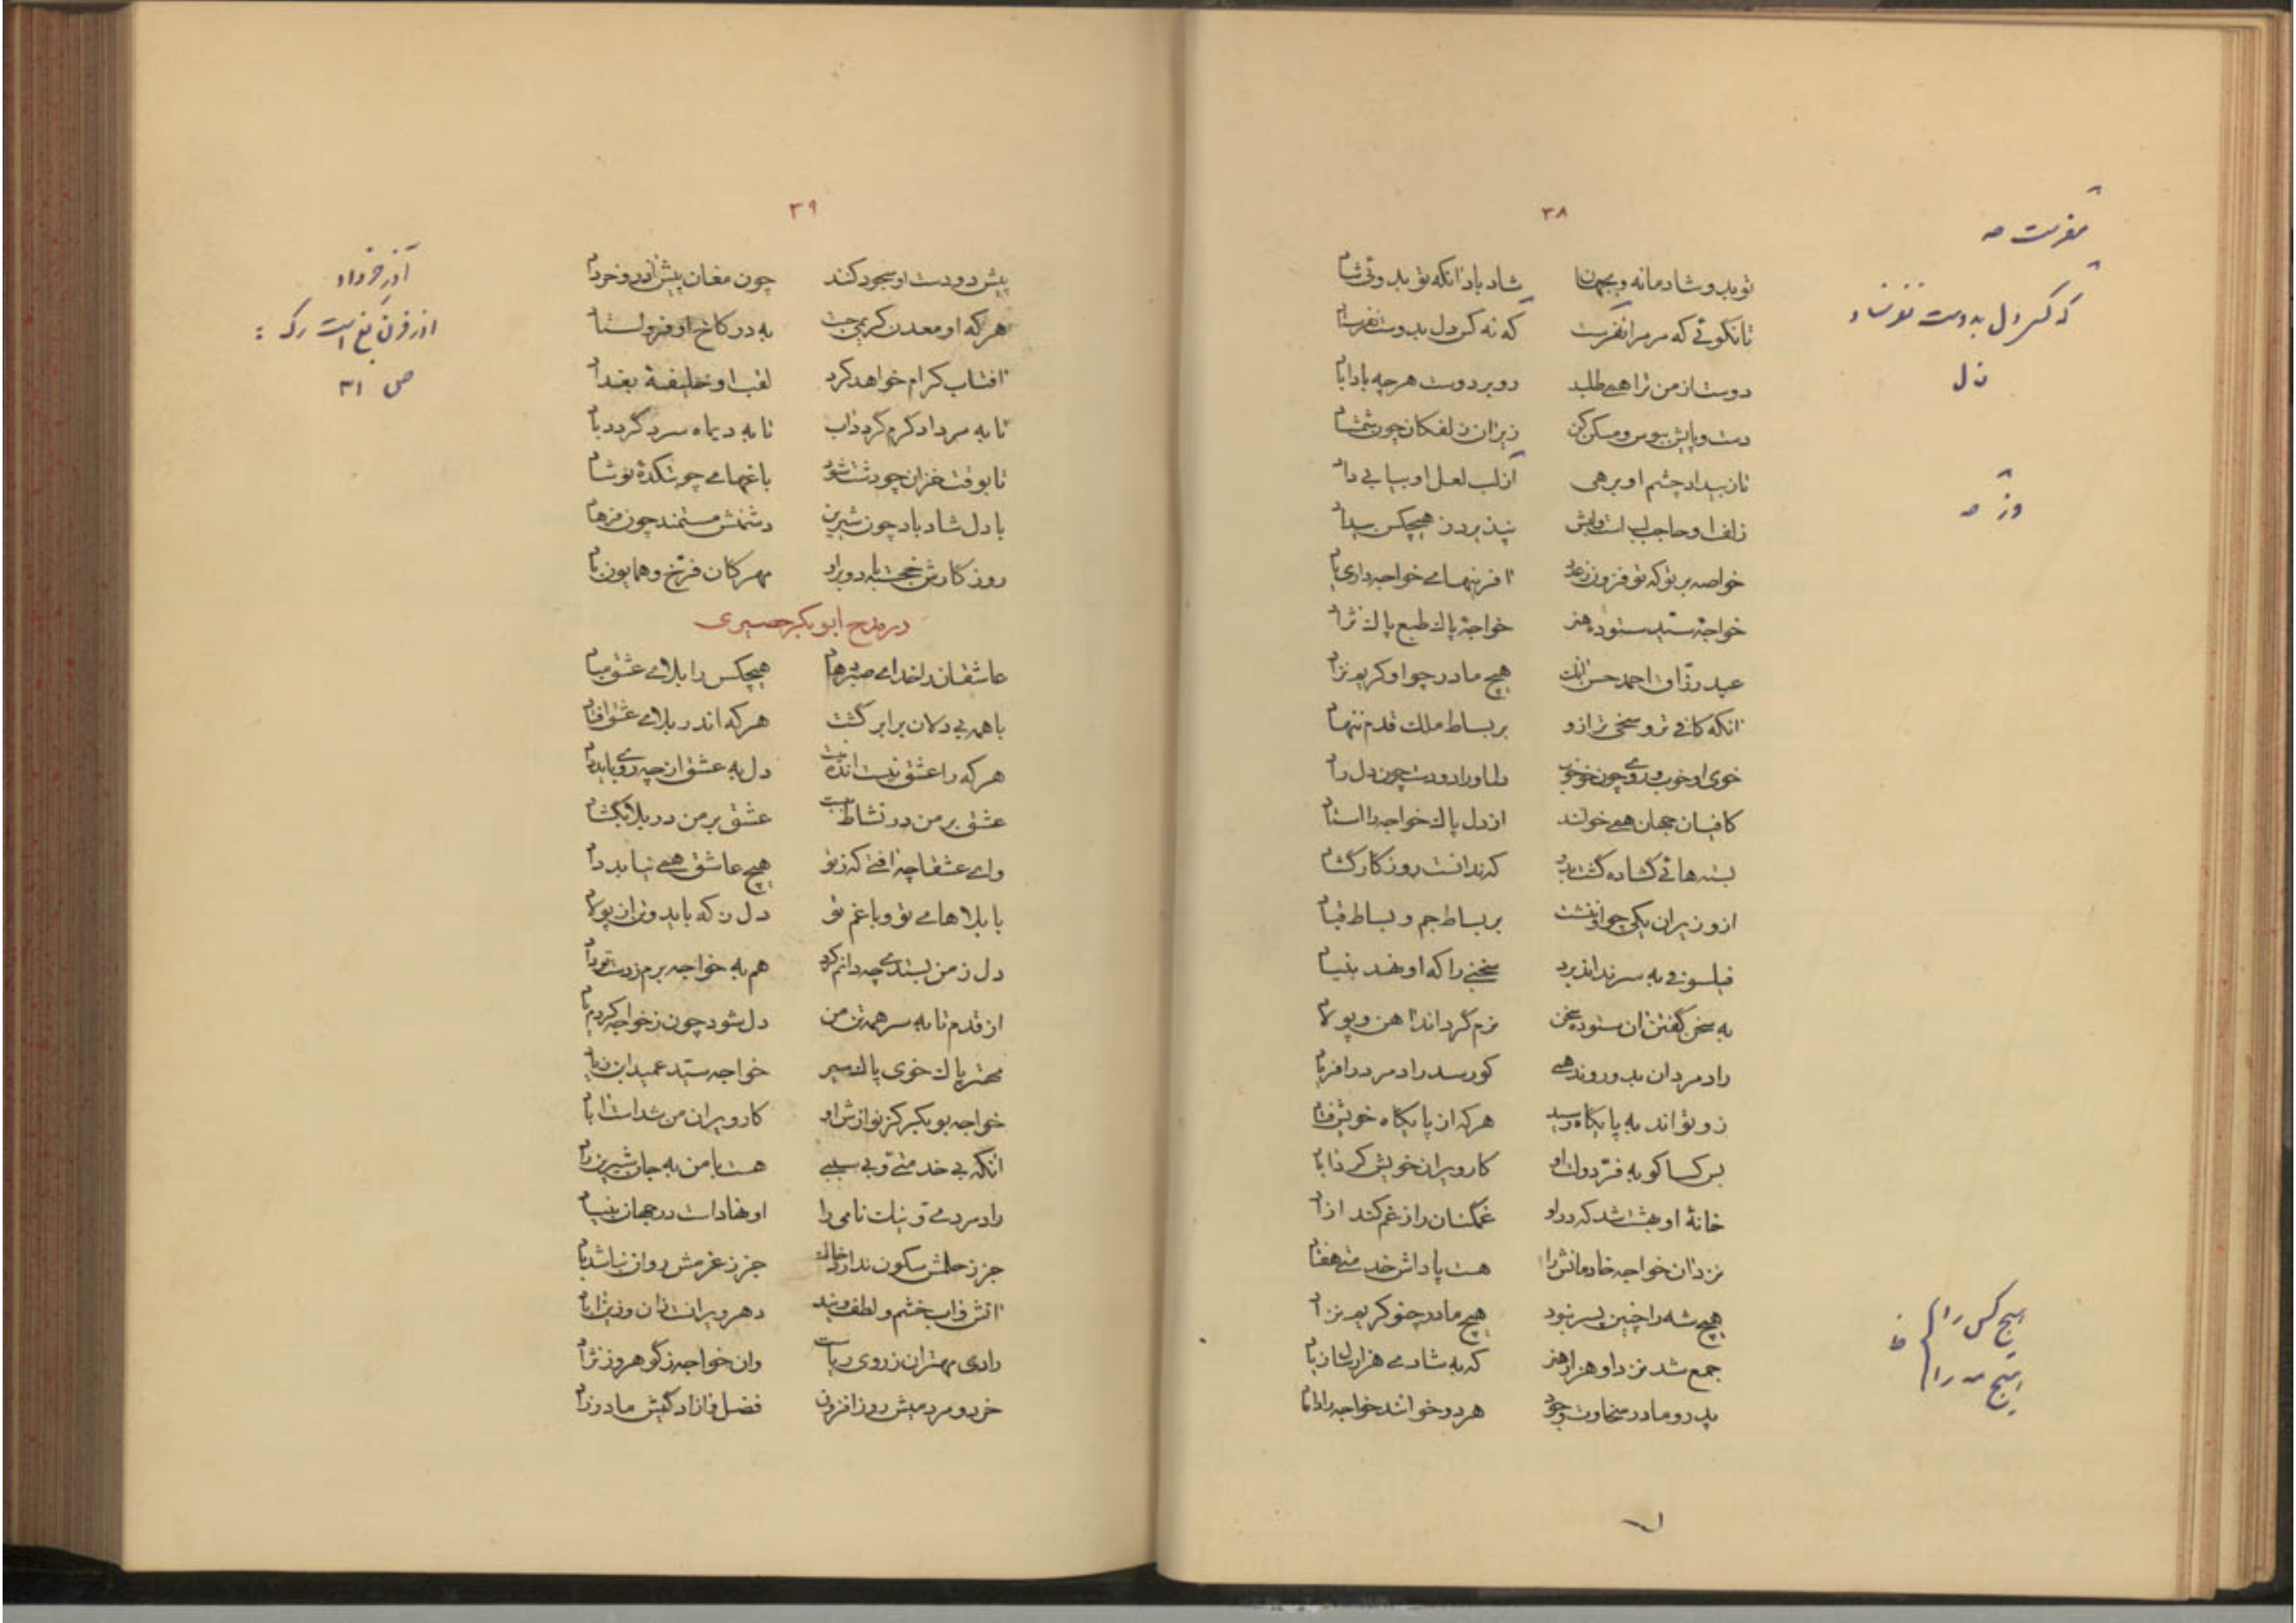 ۳۸
تو بدو شادمانه و بجهان شاد باد آنکه تو بدوئی شاد
تا نگوئی که مر مرا نفرست که نه کس دل بدوست نفرستاد
دوست از من ترا همی طلبد رو بر دوست هرچه بادا باد
دست و پایش ببوس و مسکن کن زیر آن زلفکان چون شمشاد
تا ز بیداد چشم او برهی از لب لعل او بیابی داد
زلف او حاجب لب است و لبش نپذیرد ز هیچکس بیداد
خاصه بر تو که تو فزون ز عدد آفرینهای خواجه داری یاد
خواجهٔ سید ستوده هنر خواجهٔ پاک طبع پاک نژاد
عبد رزاق احمد حسن آنک هیچ مادر چو او کریم نزاد
آنکه کافی تر و سخی تر ازو بر بساط ملک قدم ننهاد
خوی او خوب و روی چون خو خوب دل او راد و دست چون دل راد
کافیان جهان همی خوانند از دل پاک خواجه را استاد
بسته هائی گشاده گشت بدو که ندانست روزگار گشاد
از وزیران یکی چو او ننشست بر بساط جم و بساط قباد
فیلسوفی به سر نداند برد سخنی را که او نهد بنیاد
به سخن گفتن آن ستوده سخن نرم گرداند آهن و پولاد
راد مردان بدو روند همی کو رسد راد مرد را فریاد
زو تواند به پایگاه رسید هرکه از پایگاه خویش فتاد
بس کسا کو به فر دولت او کار ویران خویش کرد آباد
خانهٔ او بهشت شد که درو غمگنان را ز غم کند آزاد
نزد آن خواجه خادمانش را هست پاداش خدمتی هفتاد
هیچ شه را چنین پسر نبود هیچ مادر چنو کریم نزاد
جمع شد نزد او هزار هنر که به شادی هزار سال زیاد
پدر و مادر سخاوت و جود هر دو خوانند خواجه را داماد
نفرست صه
که کس دل به دوست نفرستاد
ن ل
هیچ کس را
هیچ مه را
۳۹
پیش دو دست او سجود کنند چون مغان پیش آذر خرداد
هرکه او معدن کریمی جست به در کاخ او فرو استاد
آفتاب کرام خواهد کرد لقب او خلیفهٔ بغداد
تا به مرداد گرم گردد آب تا به دیماه سرد گردد باد
تا بوقت خزان چو دشت شود باغهای چو بتکدهٔ نوشاد
با دل شاد باد چون شیرین دشمنش مستمند چون فرهاد
روزگارش خجسته باد و برو مهرگان فرخ و همایون باد
در مدح ابوبکر حصیری
عاشقان را خدای صبر دهاد هیچکس را بلای عشق مباد
با همه بی دلان برابر گشت هرکه اندر بلای عشق افتاد
هرکه را عشق نیست انده نیست دل به عشق از چه روی باید داد
عشق بر من در نشاط ببست عشق بر من در بلا بگشاد
وای عشقا چه آفتی که ز تو هیچ عاشق همی نیابد داد
با بلاهای تو و با غم تو دل ز که باید و تن از پولاد
دل ز من بستدی چه دانم کرد هم به خواجه برم ز دست تو داد
از قدم تا به سر همه تن من دل شود چون ز خواجه کردم یاد
مهتر پاک خوی پاک سیر خواجه سید عمید ابن زیاد
خواجه بوبکر کز نوازش او کار ویران من شدست آباد
آنکه بی خدمتی و بی سببی هست با من به جان شیرین راد
رادمردی و نیک نامی را او نهادست در جهان بنیاد
جز ز حلمش سکون ندارد خاک جز ز عزمش روان نباشد باد
آتش و آب خشم و لطف ویند دهر ویران از آن وزین آباد
رادی مهتران ز روی ریاست وان خواجه ز گوهر و ز نژاد
خرد و مردمیش روزافزون فضل و آزادگیش مادرزاد
آذر خرداد
ص ۳۱